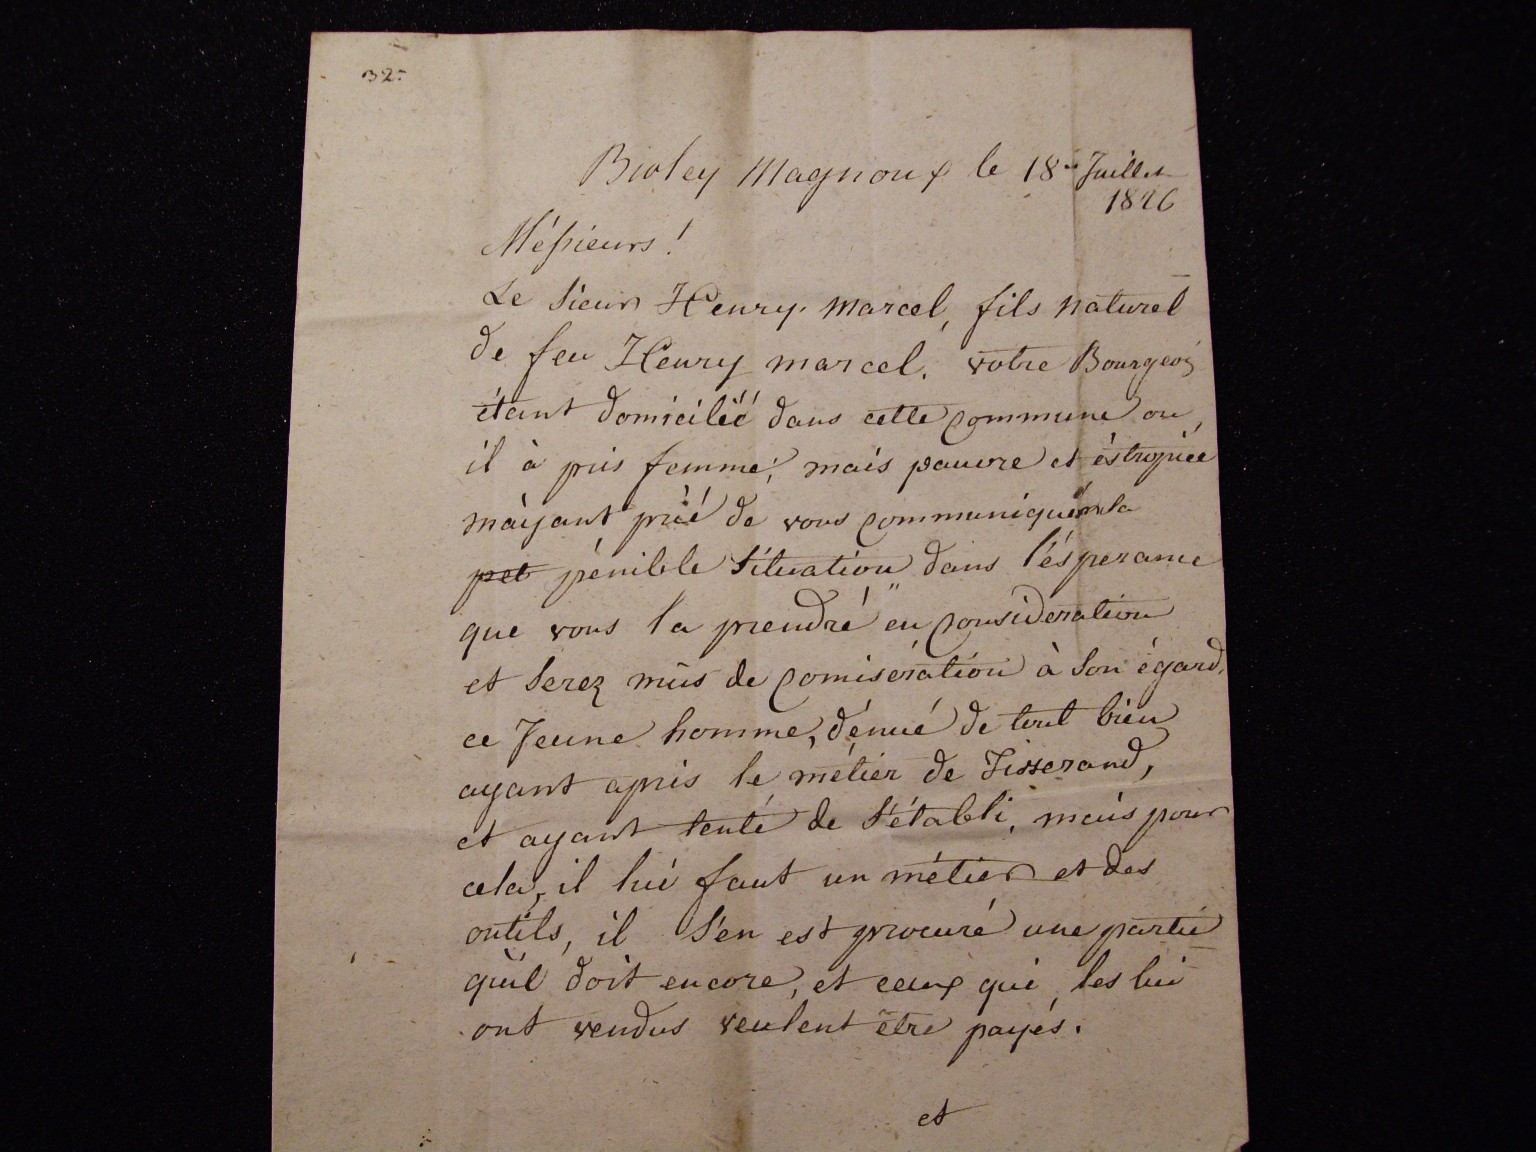 32.
Bioley Magnoux le 18.. Juillet
1826
Méssieurs!
Le Sieur Henry Marcel, fils naturel
de feu Henry marcel, votre Bourgeois
étant domiciléé dans cette commune ou,
il à pris femme; mais pauvre et éstropiée
màyant priié de vous communiquér la
pet pénible Situation dans l'ésperance
que vous la prendré en Consideration
et Serez mûs de Comisération à Son égard.
ce Jeune homme, dénué de tout bien
ayant apris le métier de Tisserand,
et ayant tenté de S'établi, mais pour
cela, il lui faut un métier et des
outils, il S'en est procuré une partie
qu'il doit encore, et ceux qui les lui
ont vendus veulent être payés.
et